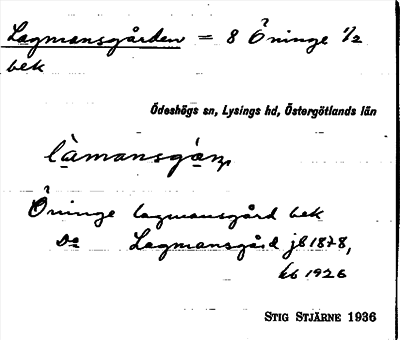 Lagmansgården = 8 Öninge 1/2
bek
Ödeshögs sn, Lysings hd, Östergötlands län
làmansgàṇ
Öninge lagmansgård bek
Do Lagmansgård jb 1878,
kb 1926
STIG STJÄRNE 1936